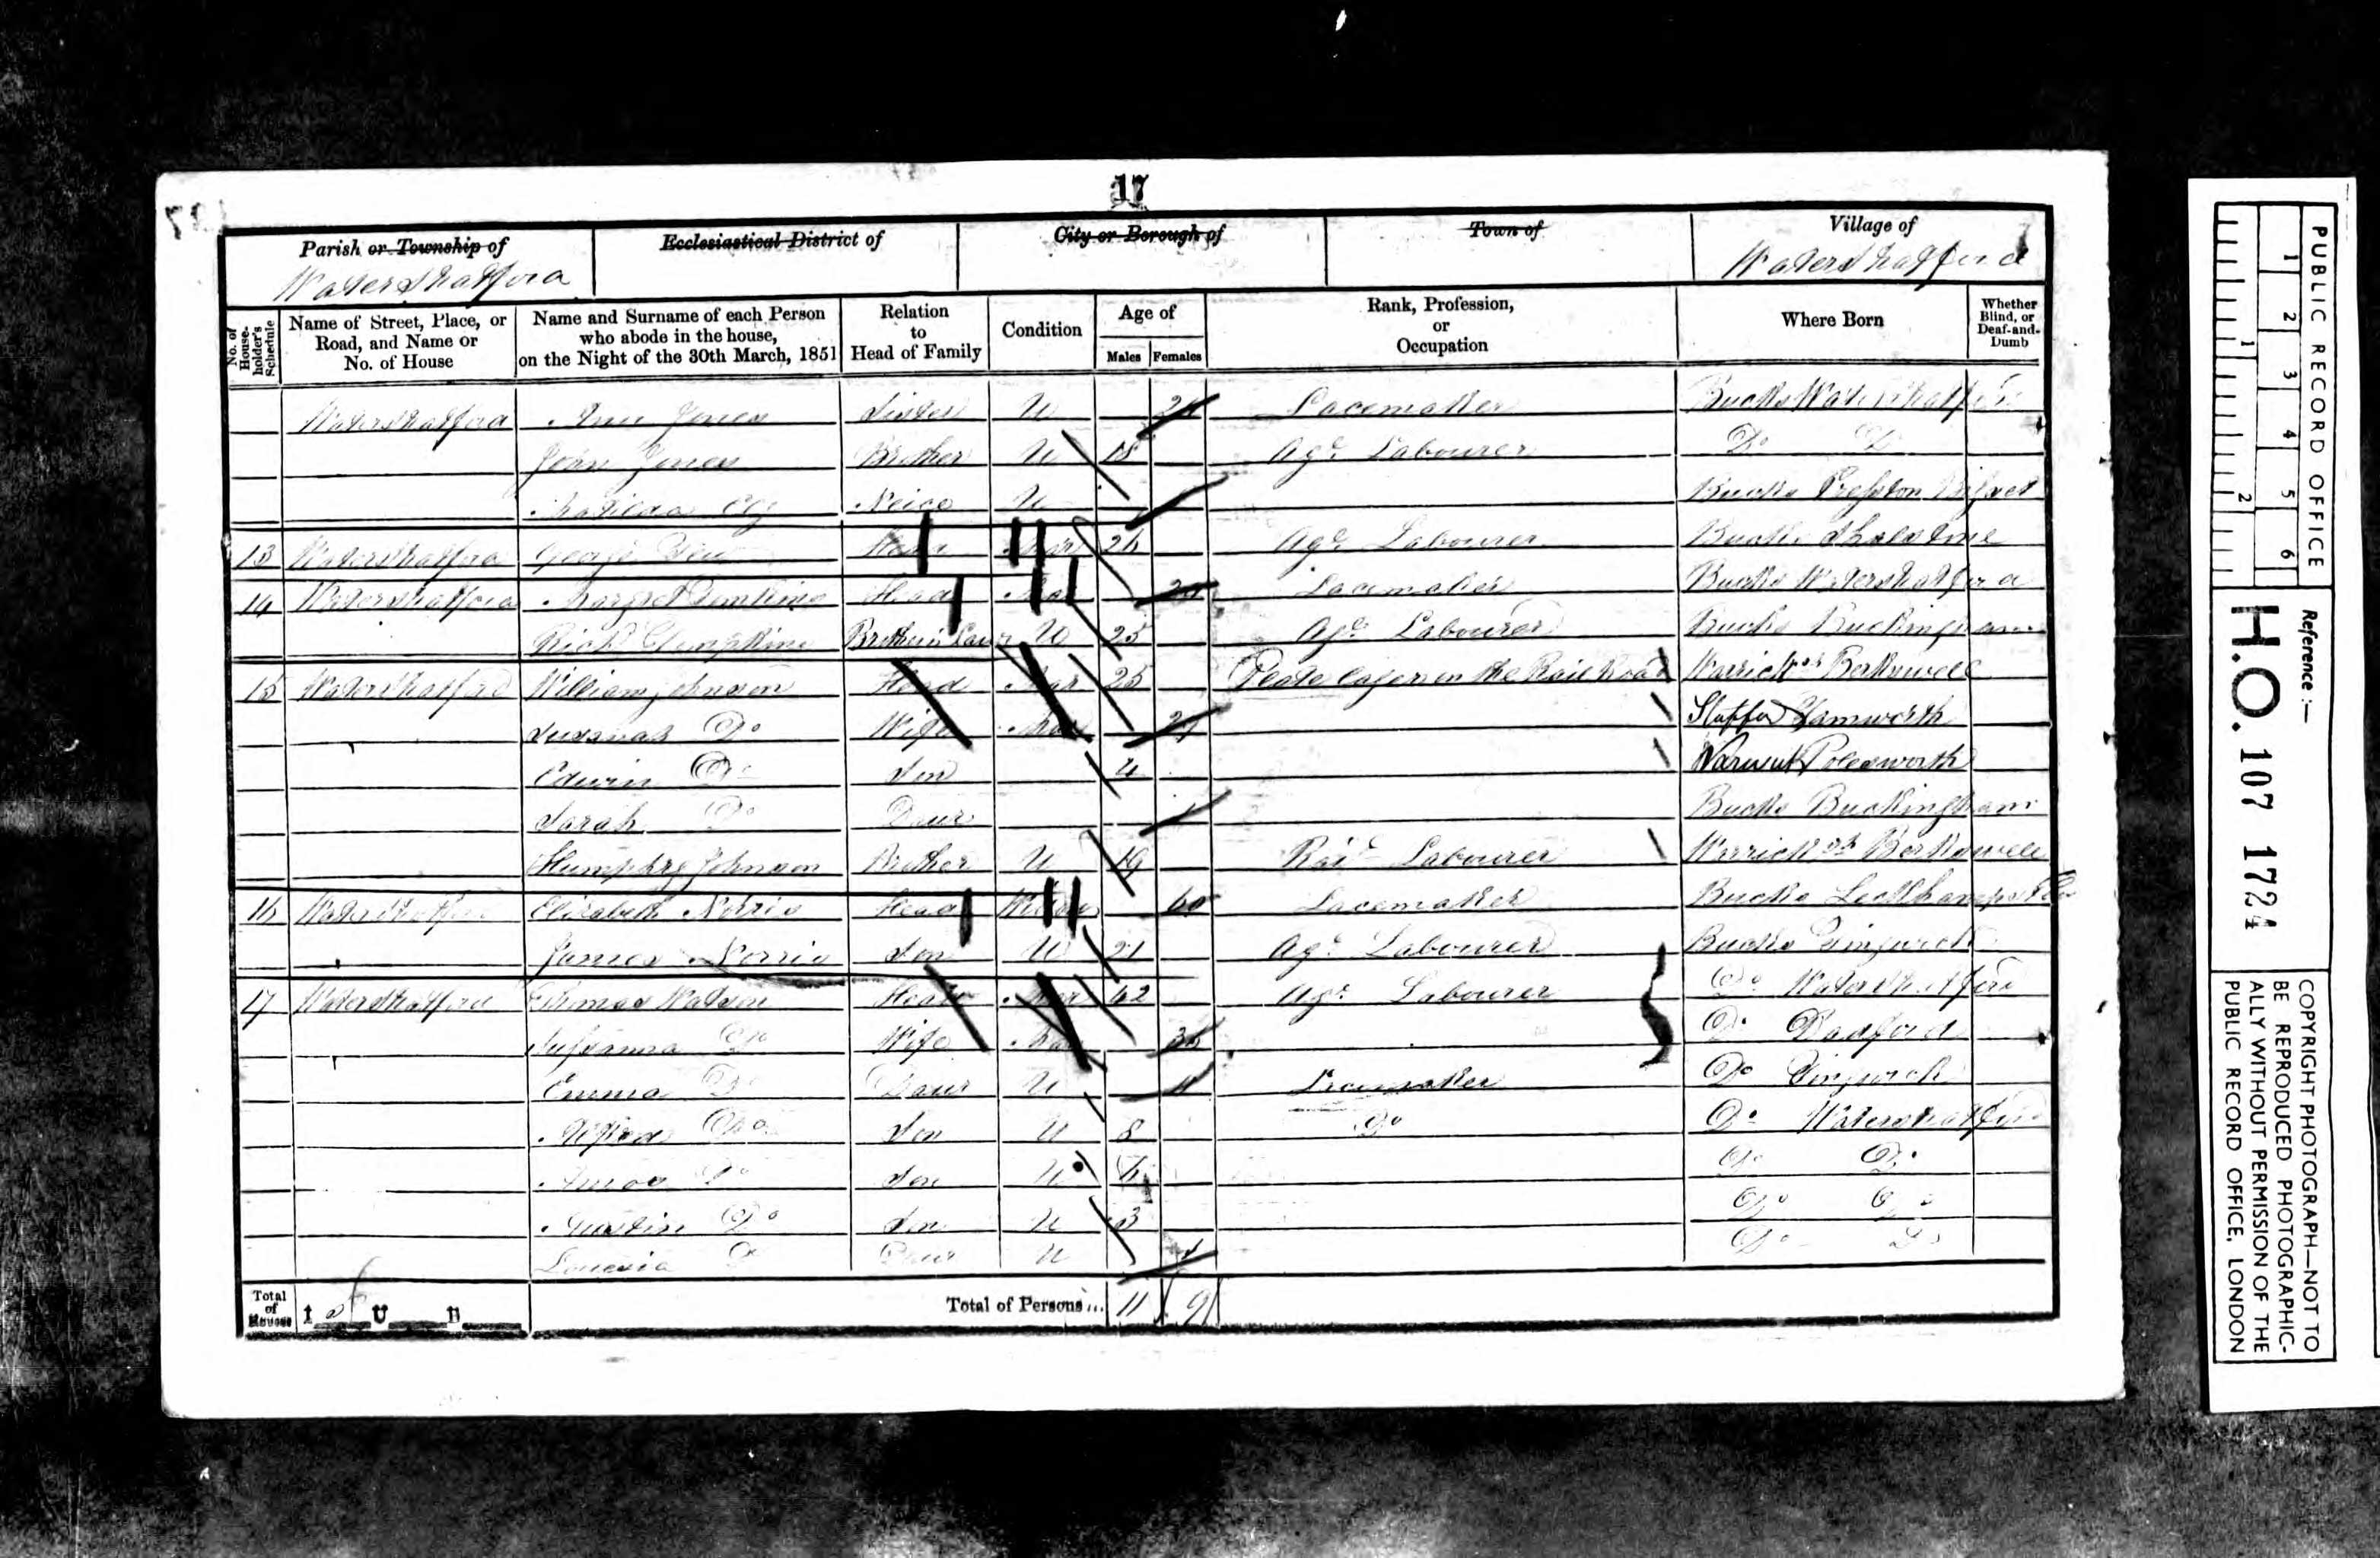 17
Parish or Township of
Ecclesiastical District of
City or Borough of
Town of
Village of
Waterstratford
Waterstratford
No. of House-holder's Schedule
Name of Street, Place, or Road, and Name or No. of House
Name and Surname of each Person who abode in the house, on the Night of the 30th March, 1851
Relation to Head of Family
Condition
Age of
Males Females
Rank, Profession, or Occupation
Where Born
Whether Blind, or Deaf-and-Dumb
Waterstratford Ann Jones Sister U Lacemaker Bucks Waterstratford
John Jones Brother U 18 Agl. Labourer Do Do
Matilda Neice U Bucks Preston Bisset
13 Waterstratford George Head Mar 26 Agl. Labourer Bucks Shalstone
14 Waterstratford Margret Head Mar Lacemaker Bucks Waterstratford
Richd Brother in Law U 25 Agl. Labourer Bucks Buckingham
15 Waterstratford William Johnson Head Mar 25 Plate layer on the Rail Road Warrick Berkswell
Susanah Do Wife Mar Staffor Tamworth
Edwin Do Son 4 Warwick Polesworth
Sarah Do Daur 1 Bucks Buckingham
Humphry Johnson Brother U 19 Rail Labourer Warrick Berkswell
16 Waterstratford Elizabeth Norris Head Widow 60 Lacemaker Bucks Leckhampstead
James Norris Son U 21 Agl. Labourer Bucks Tingwick
17 Waterstratford Thomas Watson Head Mar 42 Agl. Labourer Do Waterstratford
Wife Mar Do Radford
Emma Do Daur U 11 Lacemaker Do Tingwick
Alfred Do Son U 8 Do Do Waterstratford
Amos Do Son U 6 Do Do
Austin Do Son U 3 Do Do
Do Daur U 1 Do Do
Total of Houses I U B Total of Persons... 11 9
PUBLIC RECORD OFFICE
1 2 3 4 5 6
1 2
Reference :-
H.O. 107 1724
COPYRIGHT PHOTOGRAPH—NOT TO
BE REPRODUCED PHOTOGRAPHIC-
ALLY WITHOUT PERMISSION OF THE
PUBLIC RECORD OFFICE, LONDON